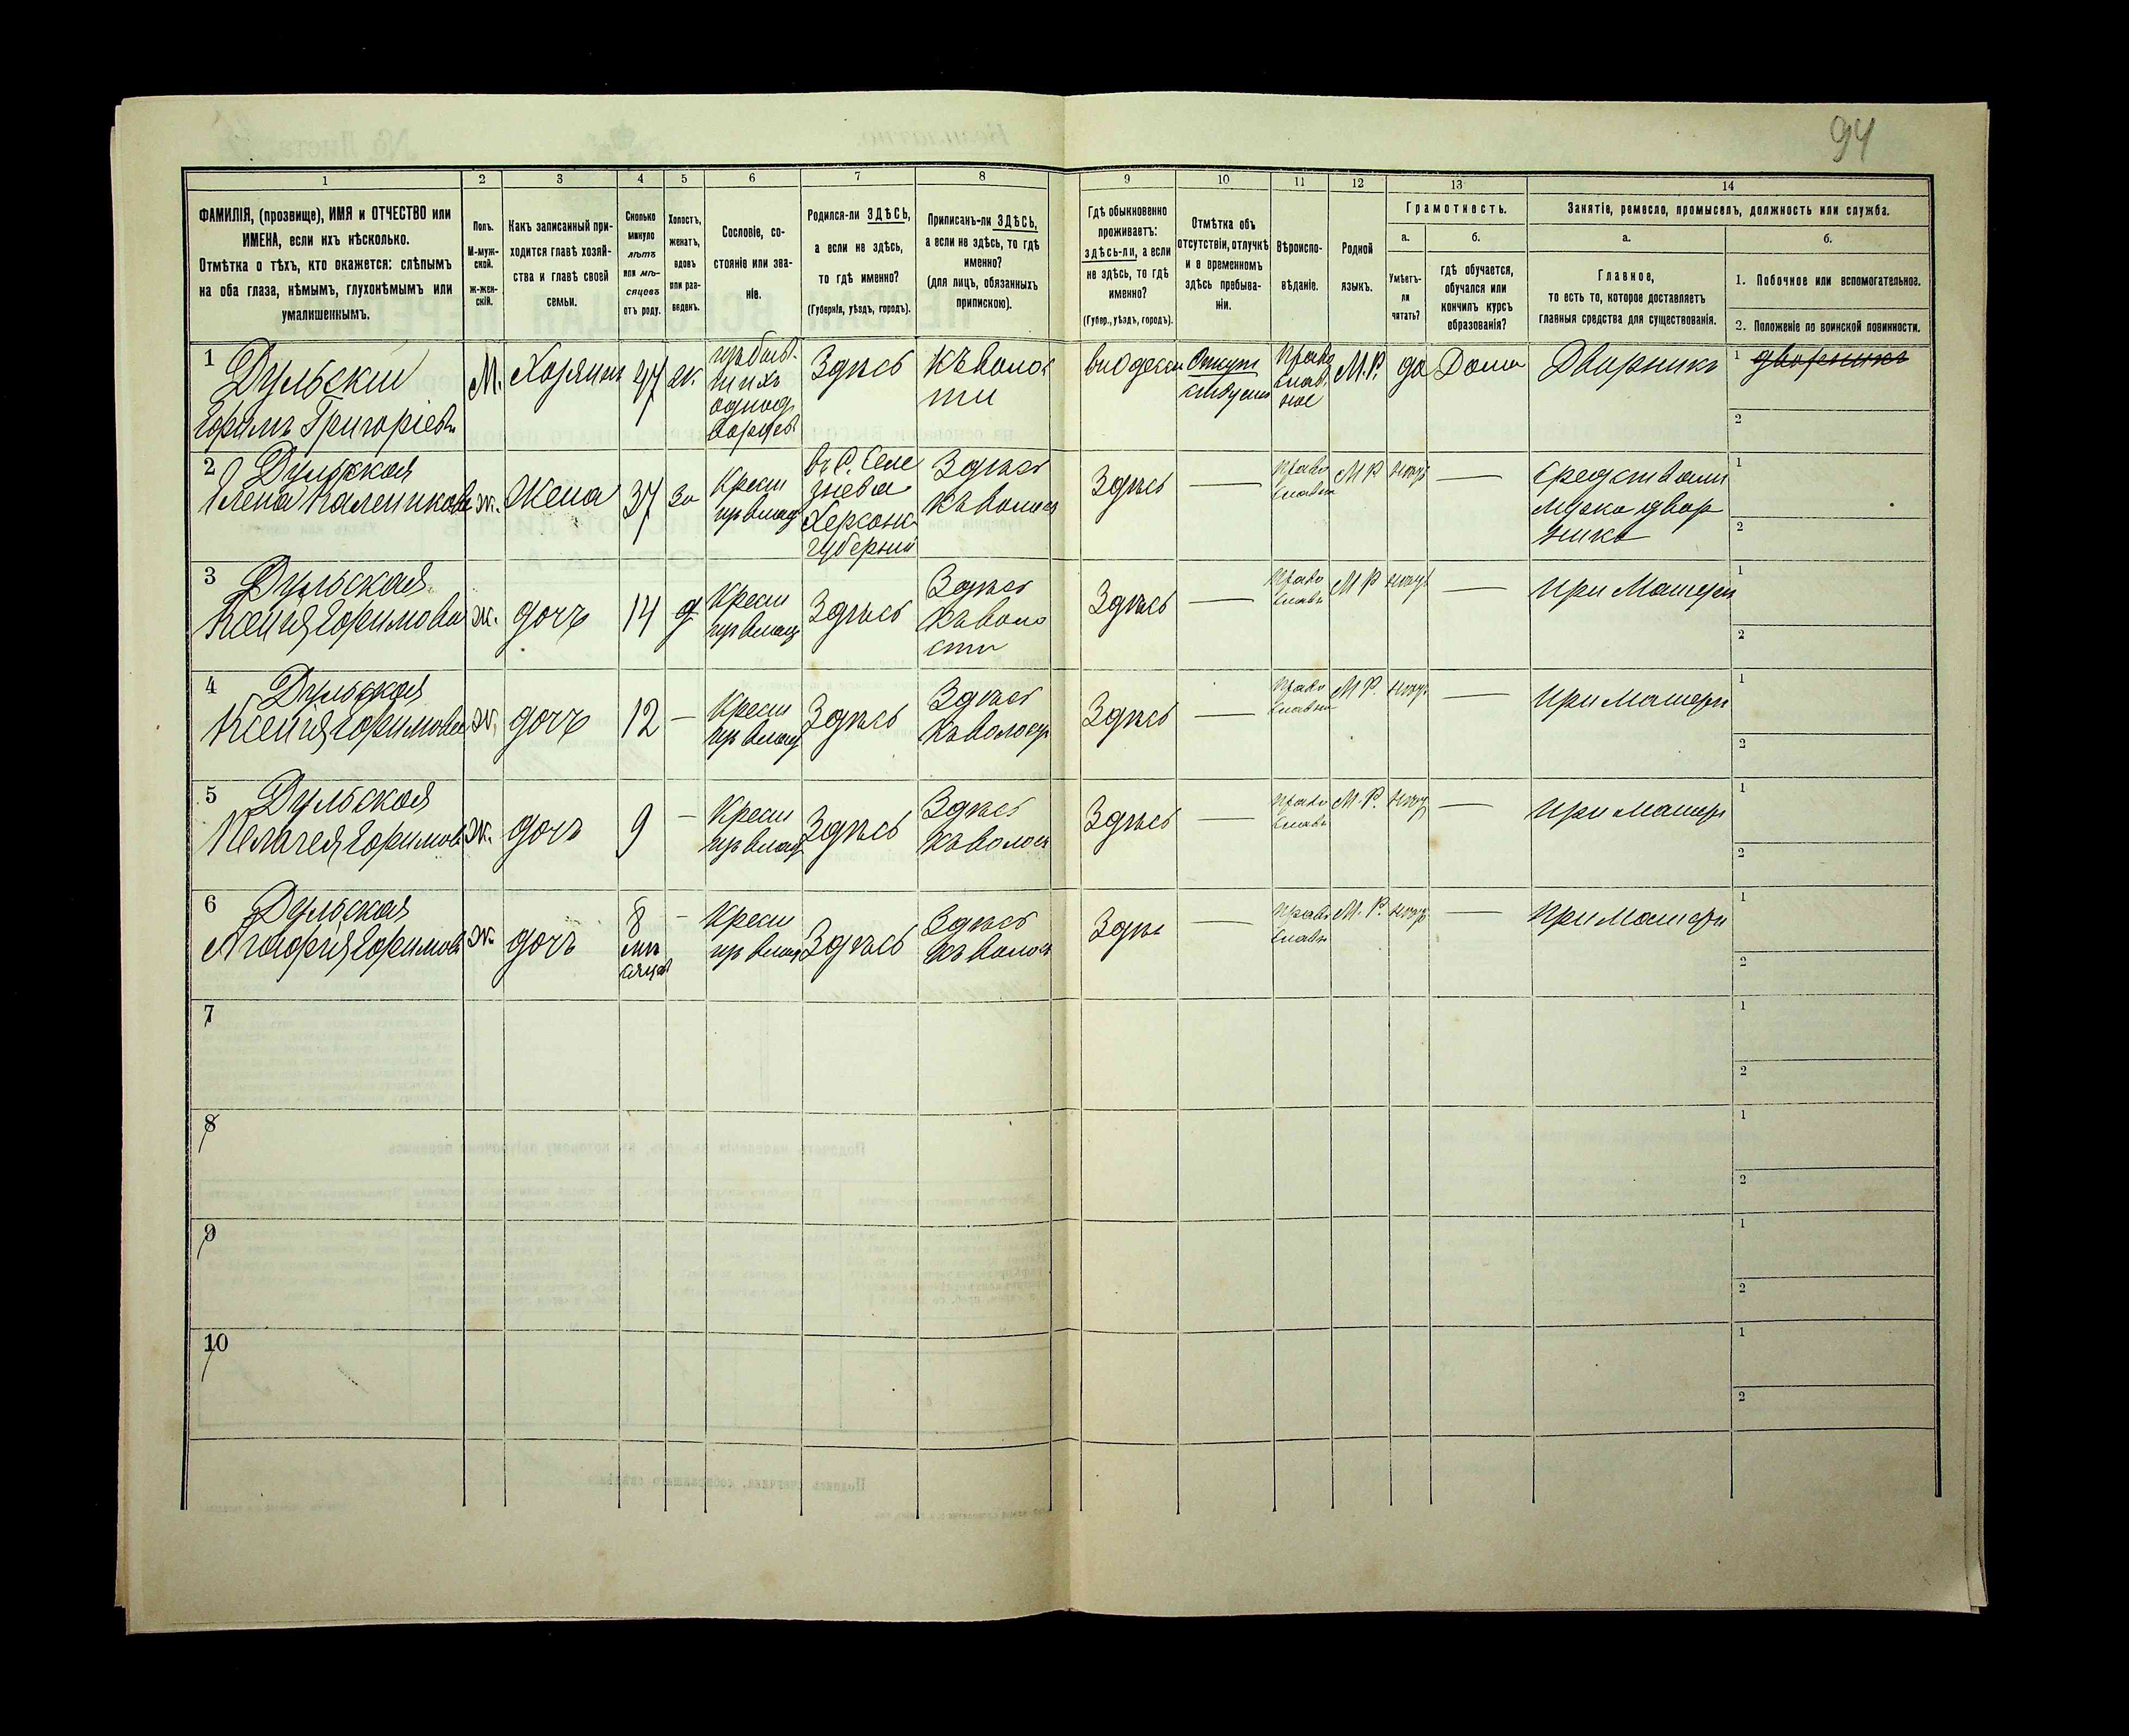 94
1
2
3
4
5
6
7
8
9
10
11
12
13
14
ФАМИЛІЯ, (прозвище), ИМЯ и ОТЧЕСТВО или
ИМЕНА, если ихъ нѣсколько.
Отмѣтка о тѣхъ, кто окажется: слѣпымъ
на оба глаза, нѣмымъ, глухонѣмымъ или
умалишеннымъ.
Полъ.
М-муж-
ской.
Ж-жен-
скій.
Какъ записанный при-
ходится главѣ хозяй-
ства и главѣ своей
семьи.
Сколько
минуло
лѣтъ
или мѣ-
сяцевъ
отъ роду.
Холостъ,
женатъ,
вдовъ
или раз-
веденъ.
Сословіе, со-
стояніе или зва-
ніе.
Родился-ли ЗДѢСЬ,
а если не здѣсь,
то гдѣ именно?
(Губернія, уѣздъ, городъ).
Приписанъ-ли ЗДѢСЬ,
а если не здѣсь, то гдѣ
именно?
(для лицъ, обязанныхъ
припискою).
Гдѣ обыкновенно
проживаетъ:
здѣсь-ли, а если
не здѣсь, то гдѣ
именно?
(Губер., уѣздъ, городъ).
Отмѣтка объ
отсутствіи, отлучкѣ
и о временномъ
здѣсь пребыва-
ніи.
Вѣроиспо-
вѣданіе.
Родной
языкъ.
Грамотность.
а.
Умѣетъ-
ли
читать?
б.
гдѣ обучается,
обучался или
кончилъ курсъ
образованія?
Занятіе, ремесло, промыселъ, должность или служба.
а.
Главное,
то есть то, которое доставляетъ
главныя средства для существованія.
б.
1. Побочное или вспомогательное.
2. Положеніе по воинской повинности.
1 Дульскіи
Григоріев
М.
Хозяинъ
47
ж.
однод
ворцев
Здѣсь
Къ волос
ти
Отсут
ствуетъ
Право
слав
ное
М.Р.
да
Дома
Дворникъ
1 дворникъ
2
2 Дульская
Елена
ж.
Жена
37
за
Крест
Херсонс
губерніи
Здѣсь
Къ волост
Здѣсь
—
право
славн
М Р
—
средствами
мужа двор
ника
1
2
3 Дульская
ж.
дочь
14
д
Крест
Здѣсь
Здѣсь
Къ воло
сти
Здѣсь
—
право
славн
М Р
—
при Матери
1
2
4 Дульская
ж.
дочь
12
—
Крест
Здѣсь
Здѣсь
Къ волост
Здѣсь
—
право
славн
М Р.
—
при матери
1
2
5 Дульская
Пелагея
ж.
дочъ
9
—
Крест
Здѣсь
Здѣсь
Къ волост
Здѣсь
—
право
славн
М. Р.
—
при матери
1
2
6 Дульская
Агафія
ж
дочъ
8
мѣ
сяцев
—
Крест
Здѣсь
Здѣсь
Къ волост
Здѣс
—
право
славн
М. Р.
—
при матери
1
2
7
1
2
8
1
2
9
1
2
10
1
2